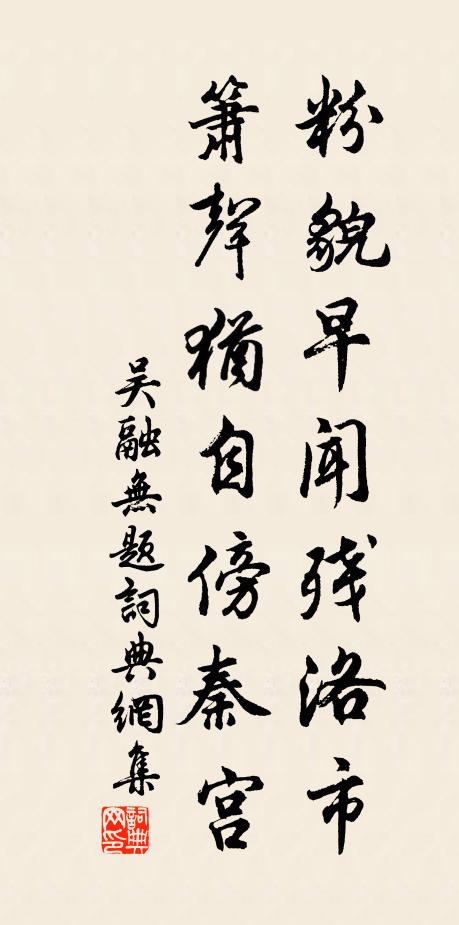 粉貌早闻残洛市
箫声犹自傍秦宫
吴融無题詞典網集
詞典网印